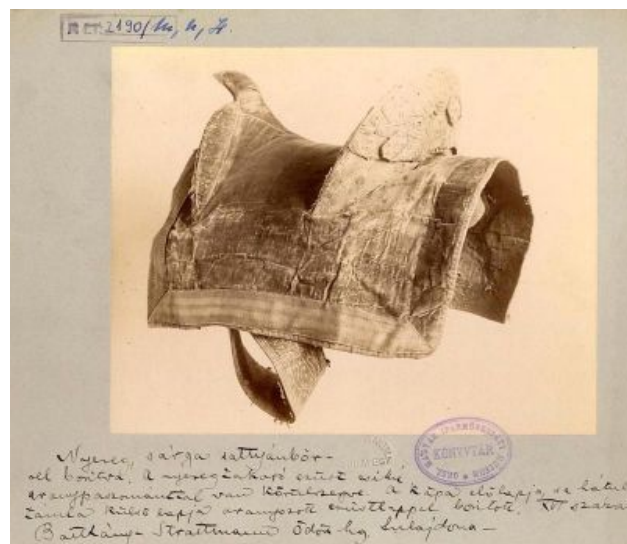 2190/
Nyereg, sárga szattyánbőr-
rel borítva. A nyeregtakaró ezüst
aranypaszománttal van körülszegve. A kápa előlapja, a hát
támla külső lapja aranyozott ezüstlappal borított. XVI száza
Batthány Strattmann Ödön hg. tulajdona –
KÖNYVTÁR